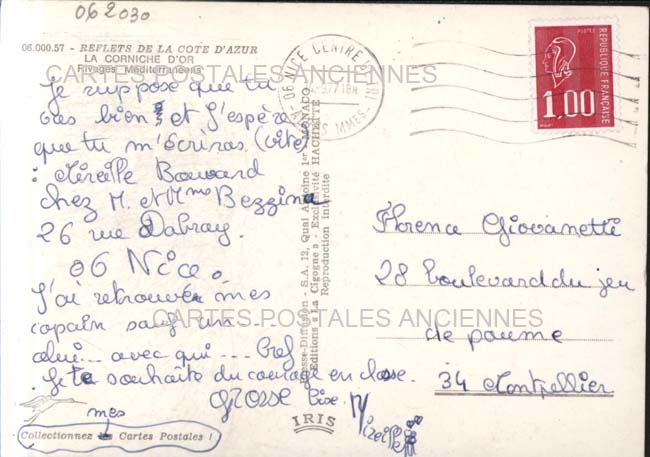 062030
06.000.57 - REFLETS DE LA COTE D'AZUR
LA CORNICHE D'OR
Rivages Méditerranéens
CARTES POSTALES ANCIENNES
Je suppose que tu
vas bien et J'espère
que tu m'écriras (vite)
: Mireille Bouvard
chez M. et Mme Bezzina
26 rue Dabray.
06 Nice.
J'ai retrouvée mes
copain sauf un
celui... avec qui --- Bref
. Je te souhaite du courage en classe.
GROSSE Bise. Mireille
mes
Collectionnez les Cartes Postales !
IRIS
S.A. 12, Quai Antoine 1er - MONACO
Editions "La Cigogne" - Exclusivité HACHETTE
Reproduction interdite
06 NICE CENTRE
18H
POSTES
REPUBLIQUE FRANÇAISE
1,00
Florence Giovanetti
28 boulevard du jeu
de paume
34 Montpellier
CARTES POSTALES ANCIENNES